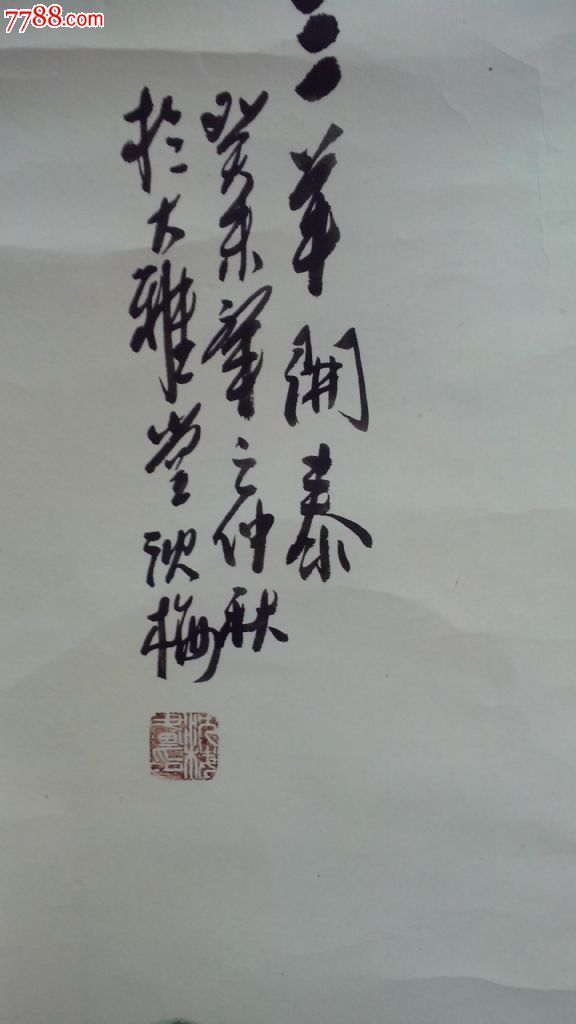 7788.com
三羊開泰
癸未之仲秋
於大雅堂沈梅